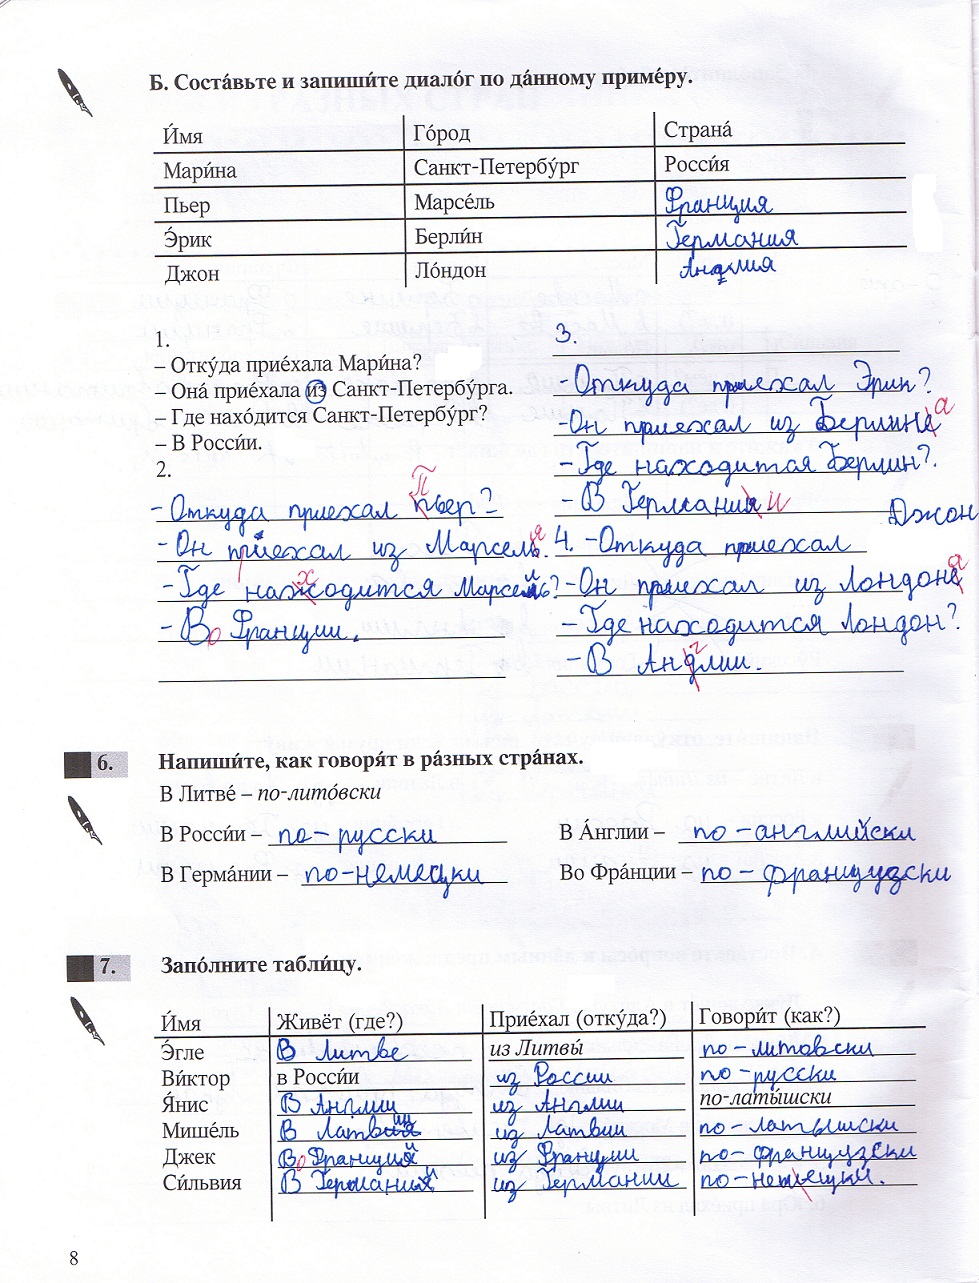 Б. Соста́вьте и запиши́те диало́г по да́нному приме́ру.
И́мя Го́род Страна́
Мари́на Санкт-Петербу́рг Росси́я
Пьер Марсе́ль Франция
Э́рик Берли́н Германия
Джон Ло́ндон Англия
1.
– Отку́да прие́хала Мари́на?
– Она́ прие́хала из Санкт-Петербу́рга.
– Где нахо́дится Санкт-Петербу́рг?
– В Росси́и.
2.
- Откуда приехал Пьер?
- Он приехал из Марселя.
- Где находится Марсель?
- Во Франции.
3.
- Откуда приехал Эрик?
- Он приехал из Берлина
- Где находится Берлин?
- В Германии
Джон
4. - Откуда приехал
- Он приехал из Лондона
- Где находится Лондон?
- В Англии.
6. Напиши́те, как говоря́т в ра́зных стра́нах.
В Литве́ – по-лито́вски
В Росси́и – по-русски В А́нглии – по-английски
В Герма́нии – по-немецки Во Фра́нции – по-французски
7. Запо́лните табли́цу.
И́мя Живёт (где?) Прие́хал (отку́да?) Говори́т (как?)
Э́гле В Литве из Литвы́ по-литовски
Ви́ктор в Росси́и из России по-русски
Я́нис В Англии из Англии по-латы́шски
Мише́ль В Латвии из Латвии по-латышски
Джек Во Франции из Франции по-французски
Си́львия В Германии из Германии по-немецки.
8